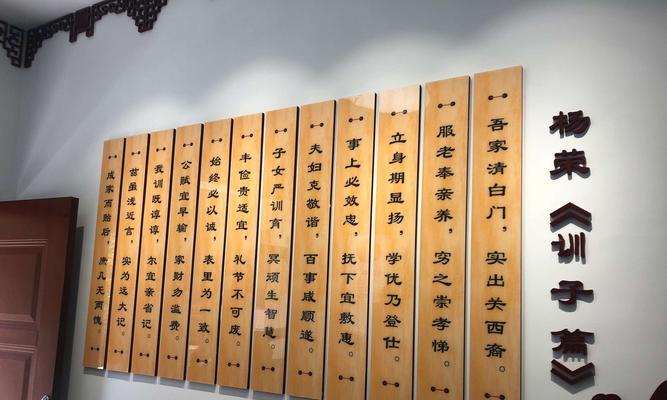 杨荣《训子篇》
吾家清白门，实出关西裔。
服老奉亲养，穷之崇孝悌。
立身期显扬，学优乃登仕。
事上必效忠，抚下宜敷惠。
夫妇克敬谐，百事咸顺遂。
子女严训育，冥顽生智慧。
丰俭贵适宜，礼节不可废。
始终必以诚，表里为一致。
公赋宜早输，家财勿滥费。
我训既谆谆，尔宜亲省记。
兹虽浅近言，实为远大记。
成家而贻后，庶几无两愧。